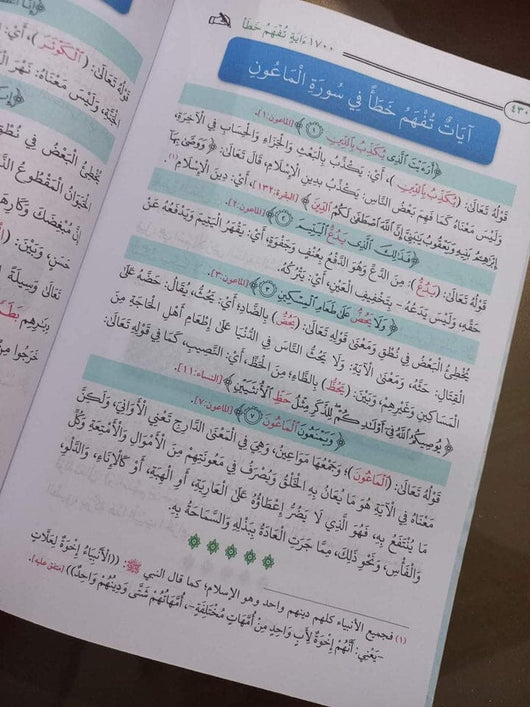 ١٧٠٠ ءَايَةٍ تُفْهَمُ خَطَأً
٤٣٠
آيَاتٌ تُفْهَمُ خَطَأً فِي سُورَةِ الْمَاعُونِ
﴿أَرَءَيْتَ ٱلَّذِى يُكَذِّبُ بِٱلدِّينِ ۝١﴾ [الماعون:١].
قَوْلُهُ تَعَالَى: (يُكَذِّبُ بِٱلدِّينِ)، أَيْ: يُكَذِّبُ بِالْبَعْثِ وَالْجَزَاءِ وَالْحِسَابِ فِي الْآخِرَةِ،
وَلَيْسَ مَعْنَاهُ كَمَا فَهِمَ بَعْضُ النَّاسِ: يُكَذِّبُ بِدِينِ الْإِسْلَامِ، قَالَ تَعَالَى: ﴿وَوَصَّىٰ بِهَآ
إِبْرَٰهِـۧمُ بَنِيهِ وَيَعْقُوبُ يَٰبَنِىَّ إِنَّ ٱللَّهَ ٱصْطَفَىٰ لَكُمُ ٱلدِّينَ﴾ [البقرة:١٣٢]، أَيْ: دِينَ الْإِسْلَامِ(١).
﴿فَذَٰلِكَ ٱلَّذِى يَدُعُّ ٱلْيَتِيمَ ۝٢﴾ [الماعون:٢].
قَوْلُهُ تَعَالَى: (يَدُعُّ): مِنَ الدَّعِّ وَهُوَ الدَّفْعُ بِعُنْفٍ وَجَفْوَةٍ، أَيْ: يَقْهَرُ الْيَتِيمَ وَيَدْفَعُهُ عَنْ
حَقِّهِ، وَلَيْسَ يَدَعُهُ - بِتَخْفِيفِ الْعَيْنِ، أَيْ: يَتْرُكُهُ.
﴿وَلَا يَحُضُّ عَلَىٰ طَعَامِ ٱلْمِسْكِينِ ۝٣﴾ [الماعون:٣].
يُخْطِئُ الْبَعْضُ فِي نُطْقِ وَمَعْنَى قَوْلِهِ تَعَالَى: (يَحُضُّ) بِالضَّادِ؛ أَيْ: يَحُثُّ، يُقَالُ: حَضَّهُ عَلَى
الْقِتَالِ: حَثَّهُ، وَمَعْنَى الْآيَةِ: وَلَا يَحُثُّ النَّاسَ فِي الدُّنْيَا عَلَى إِطْعَامِ أَهْلِ الْحَاجَةِ مِنَ
الْمَسَاكِينِ وَغَيْرِهِمْ، وَبَيْنَ: (يَحُظُّ) بِالظَّاءِ؛ مِنَ الْحَظِّ، أَيْ: النَّصِيبِ، كَمَا فِي قَوْلِهِ تَعَالَى:
﴿يُوصِيكُمُ ٱللَّهُ فِىٓ أَوْلَٰدِكُمْ لِلذَّكَرِ مِثْلُ حَظِّ ٱلْأُنثَيَيْنِ﴾ [النساء:١١].
﴿وَيَمْنَعُونَ ٱلْمَاعُونَ ۝٧﴾ [الماعون:٧].
قَوْلُهُ تَعَالَى: (ٱلْمَاعُونَ)؛ وَجَمْعُهَا مَوَاعِينُ، وَهِيَ فِي الْمَعْنَى الدَّارِجِ تَعْنِي الْأَوَانِيَ، وَلَكِنَّ
مَعْنَاهُ فِي الْآيَةِ هُوَ مَا يُعَانُ بِهِ الْخَلْقُ وَيُصْرَفُ فِي مَعُونَتِهِمْ مِنَ الْأَمْوَالِ وَالْأَمْتِعَةِ وَكُلُّ
مَا يُنْتَفَعُ بِهِ، فَهُوَ الَّذِي لَا يَضُرُّ إِعْطَاؤُهُ عَلَى الْعَارِيَةِ، أَوِ الْهِبَةِ، أَوْ كَالْإِنَاءِ، وَالدَّلْوِ،
وَالْفَأْسِ، وَنَحْوِ ذَلِكَ، مِمَّا جَرَتِ الْعَادَةُ بِبَذْلِهِ وَالسَّمَاحَةُ بِهِ.
(١) فجميع الأنبياء كلهم دينهم واحد وهو الإسلام؛ كما قال النبي ﷺ: ((الْأَنْبِيَاءُ إِخْوَةٌ لِعَلَّاتٍ
-يَعْنِي: أَنَّهُمْ إِخْوَةٌ لِأَبٍ وَاحِدٍ مِنْ أُمَّهَاتٍ مُخْتَلِفَةٍ-، أُمَّهَاتُهُمْ شَتَّى وَدِينُهُمْ وَاحِدٌ)) [متفق عليه].
قَوْلُهُ تَعَالَى: (ٱلْكَوْثَرَ)، أَيْ:
الْجَنَّةِ، وَلَيْسَ مَعْنَاهُ: نَهَرَ الْ
يُخْطِئُ الْبَعْضُ فِي نُطْقِ
الْحَيَوَانُ الْمَقْطُوعُ الذَّ
إِنَّ مُبْغِضَكَ وَكَارِهَ
حَسَنٍ، وَبَيْنَ: (
تَعَالَى وَسِيلَةً
خَرَجُوا مِنْ